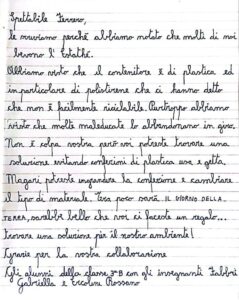 Spettabile Ferrero,
le scriviamo perché abbiamo notato che molti di noi
bevono l'estathé.
Abbiamo visto che il contenitore è di plastica ed
in particolare di polistirene che ci hanno detto
che non è facilmente riciclabile. Purtroppo abbiamo
visto che molti maleducati lo abbandonano in giro.
Non è colpa vostra però voi potete trovare una
soluzione evitando confezioni di plastica usa e getta.
Magari potreste ingrandire la confezione e cambiare
il tipo di materiale. Tra poco sarà IL GIORNO DELLA
TERRA, sarebbe bello che voi ci faceste un regalo...
trovare una soluzione per il nostro ambiente!
Grazie per la vostra collaborazione
Gli alunni della classe 3ª B con gli insegnanti Fabbri
Gabriella e Ercolani Rossano